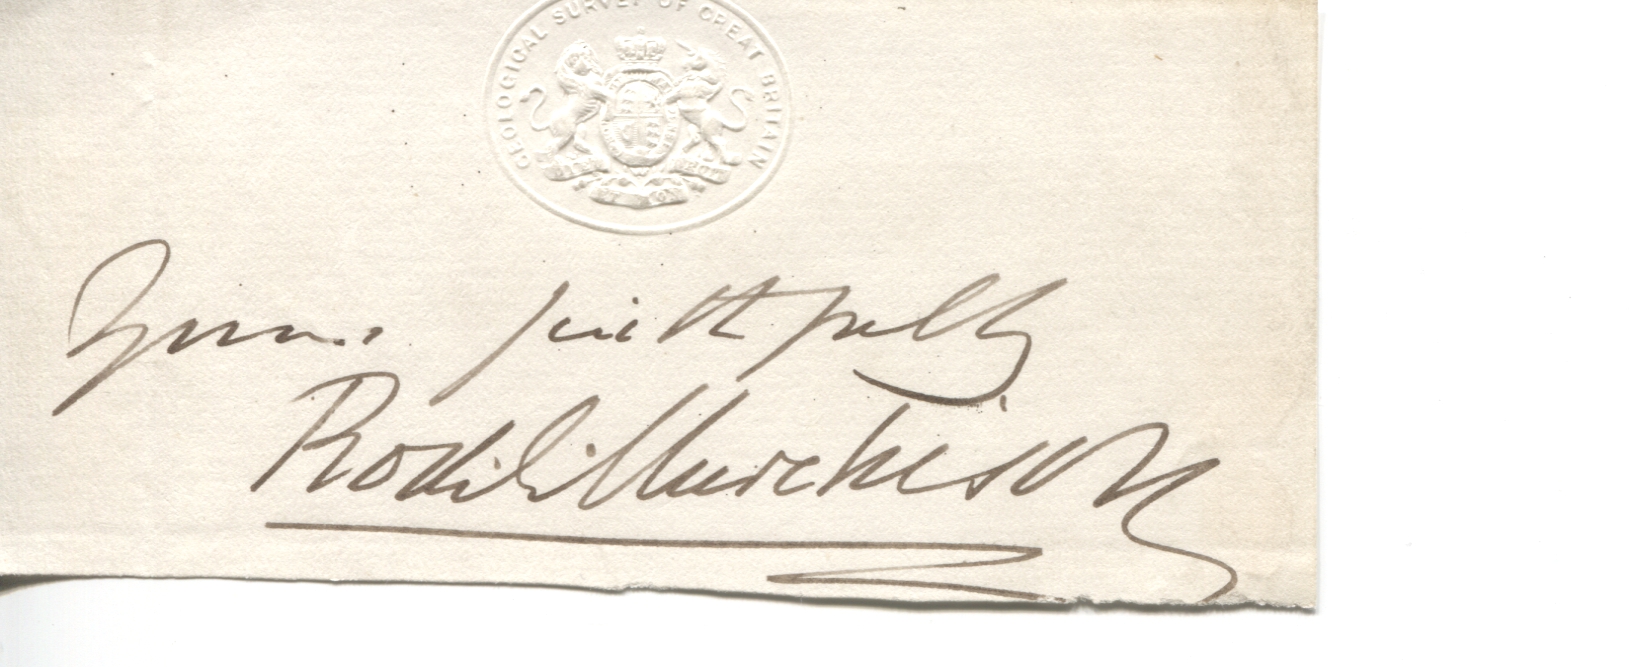 GEOLOGICAL SURVEY OF GREAT BRITAIN
Yours faithfully
Rod. I. Murchison